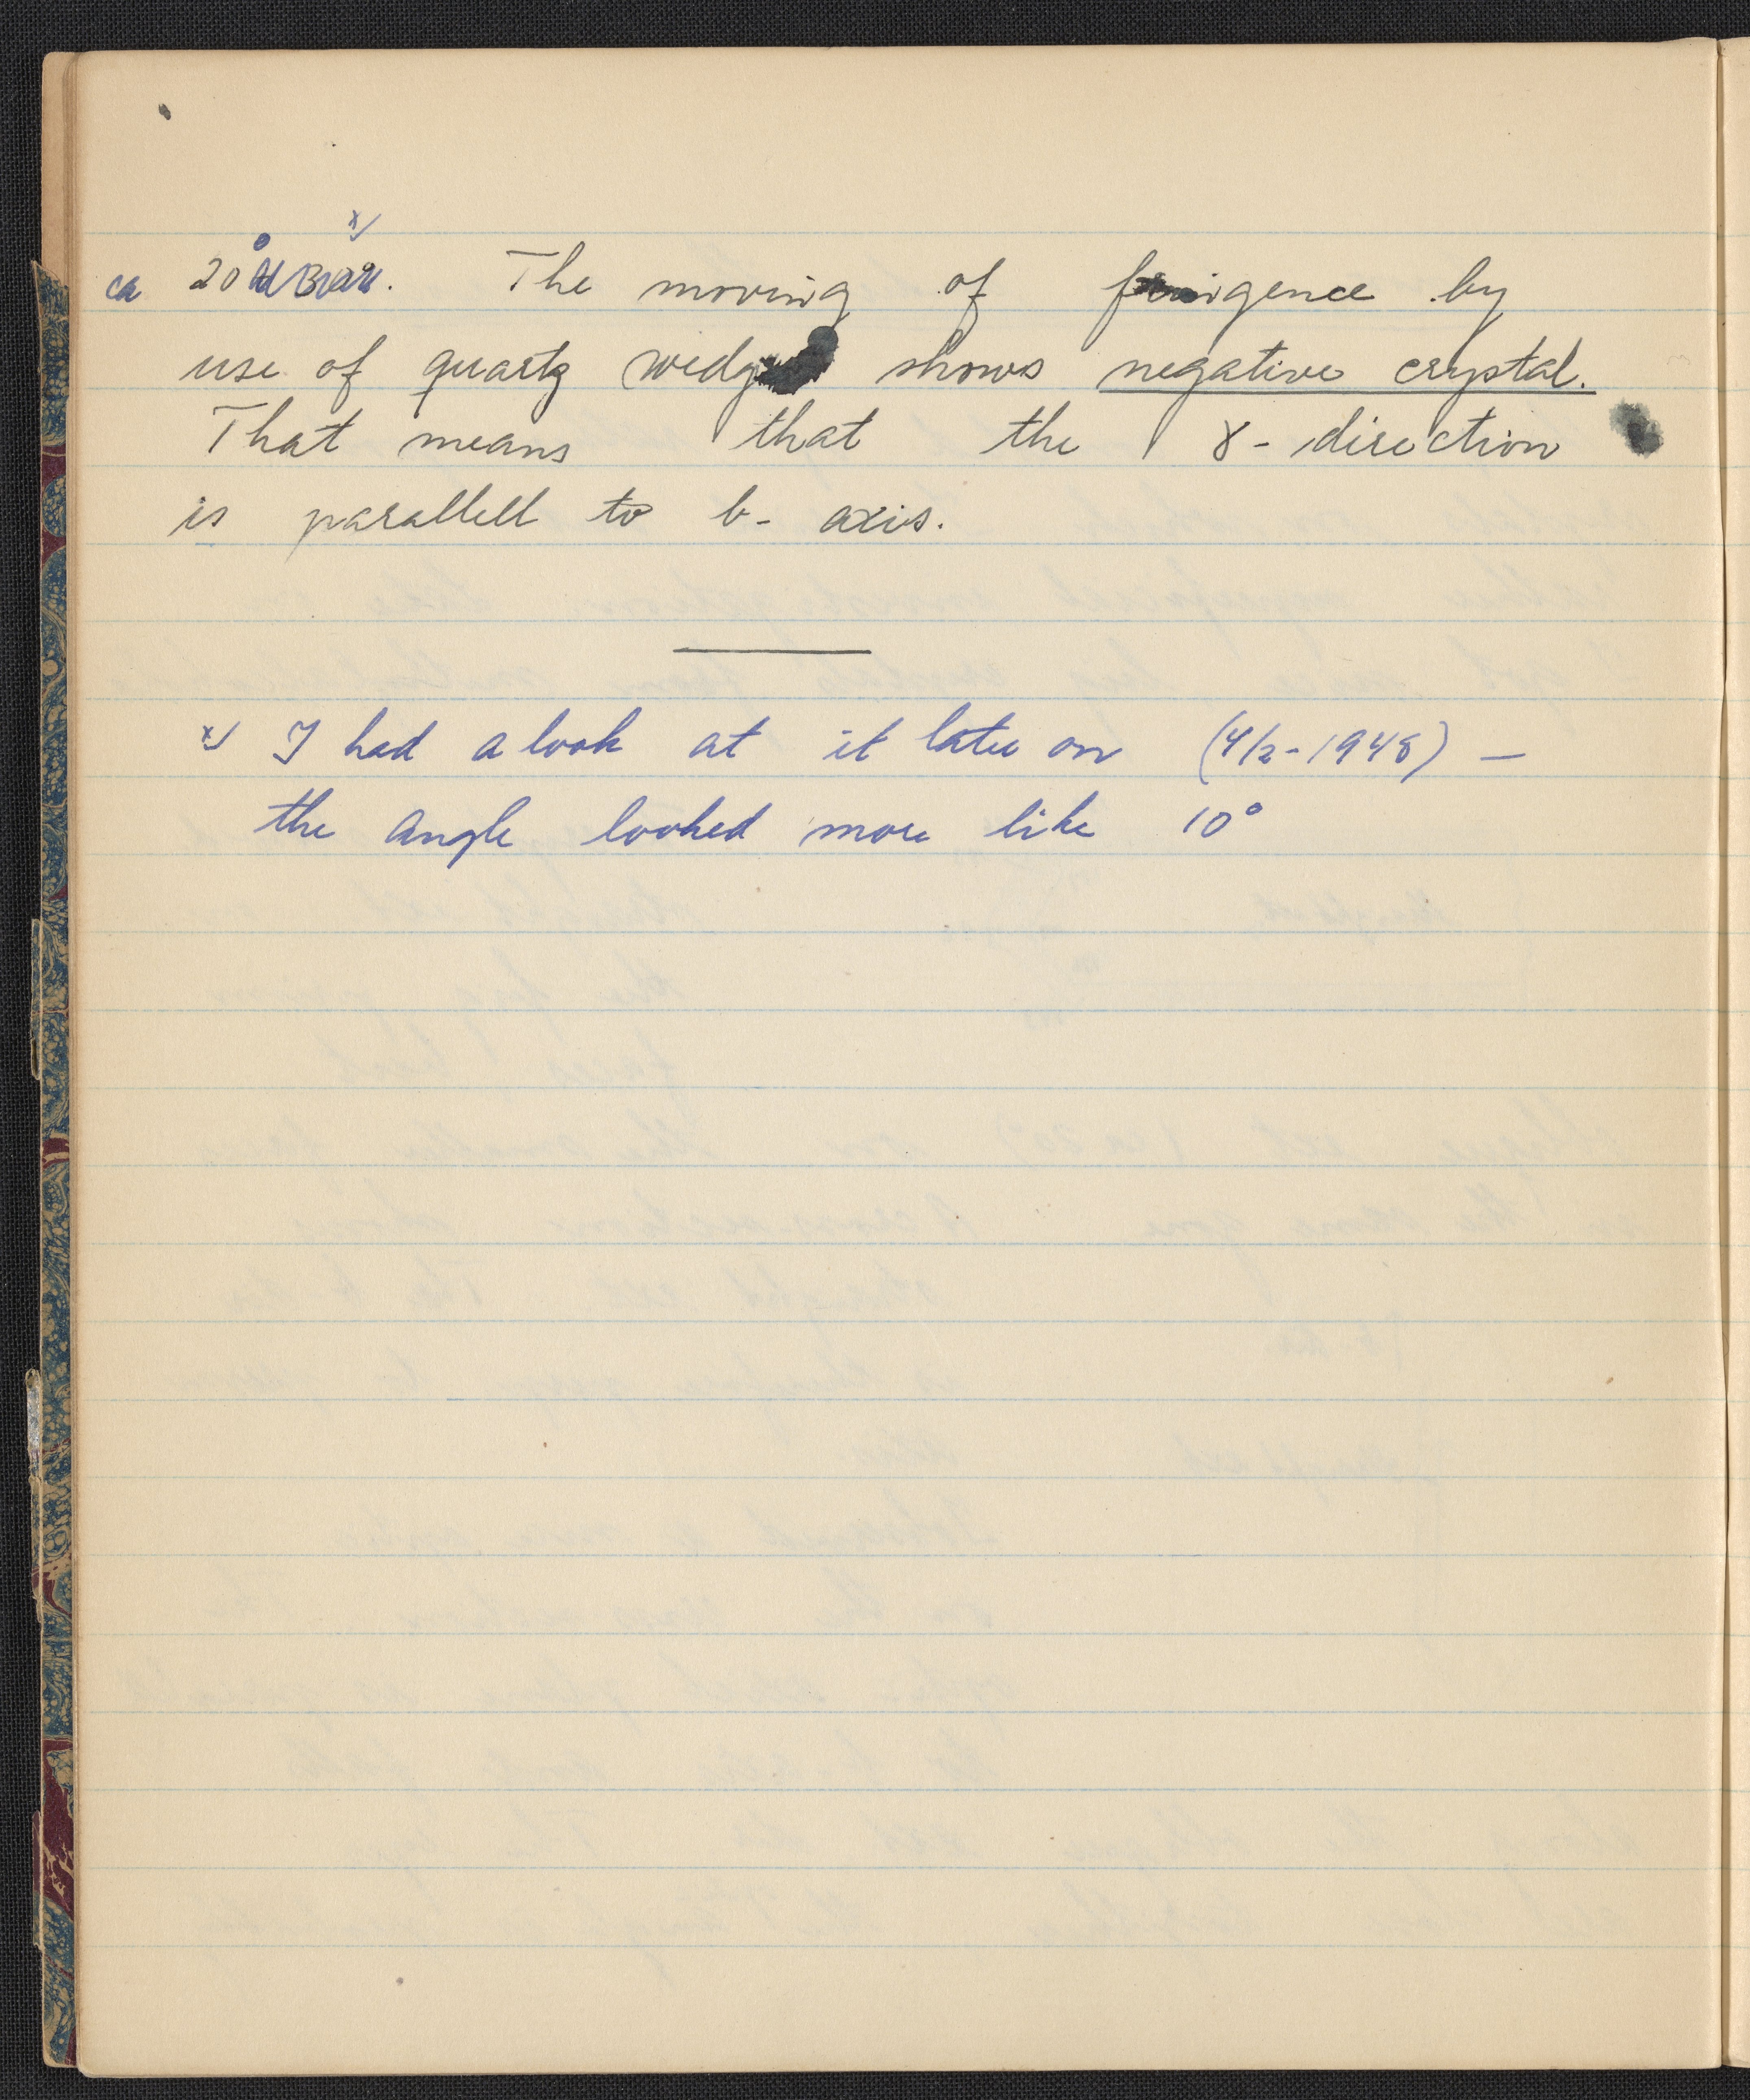 x/
ca 20°. The moving of frigence by
use of quartz wedge shows negative crystal.
That means that the γ- direction
is parallell to b- axis.
x/ I had a look at it later on (4/2-1948) —
the angle looked more like 10°